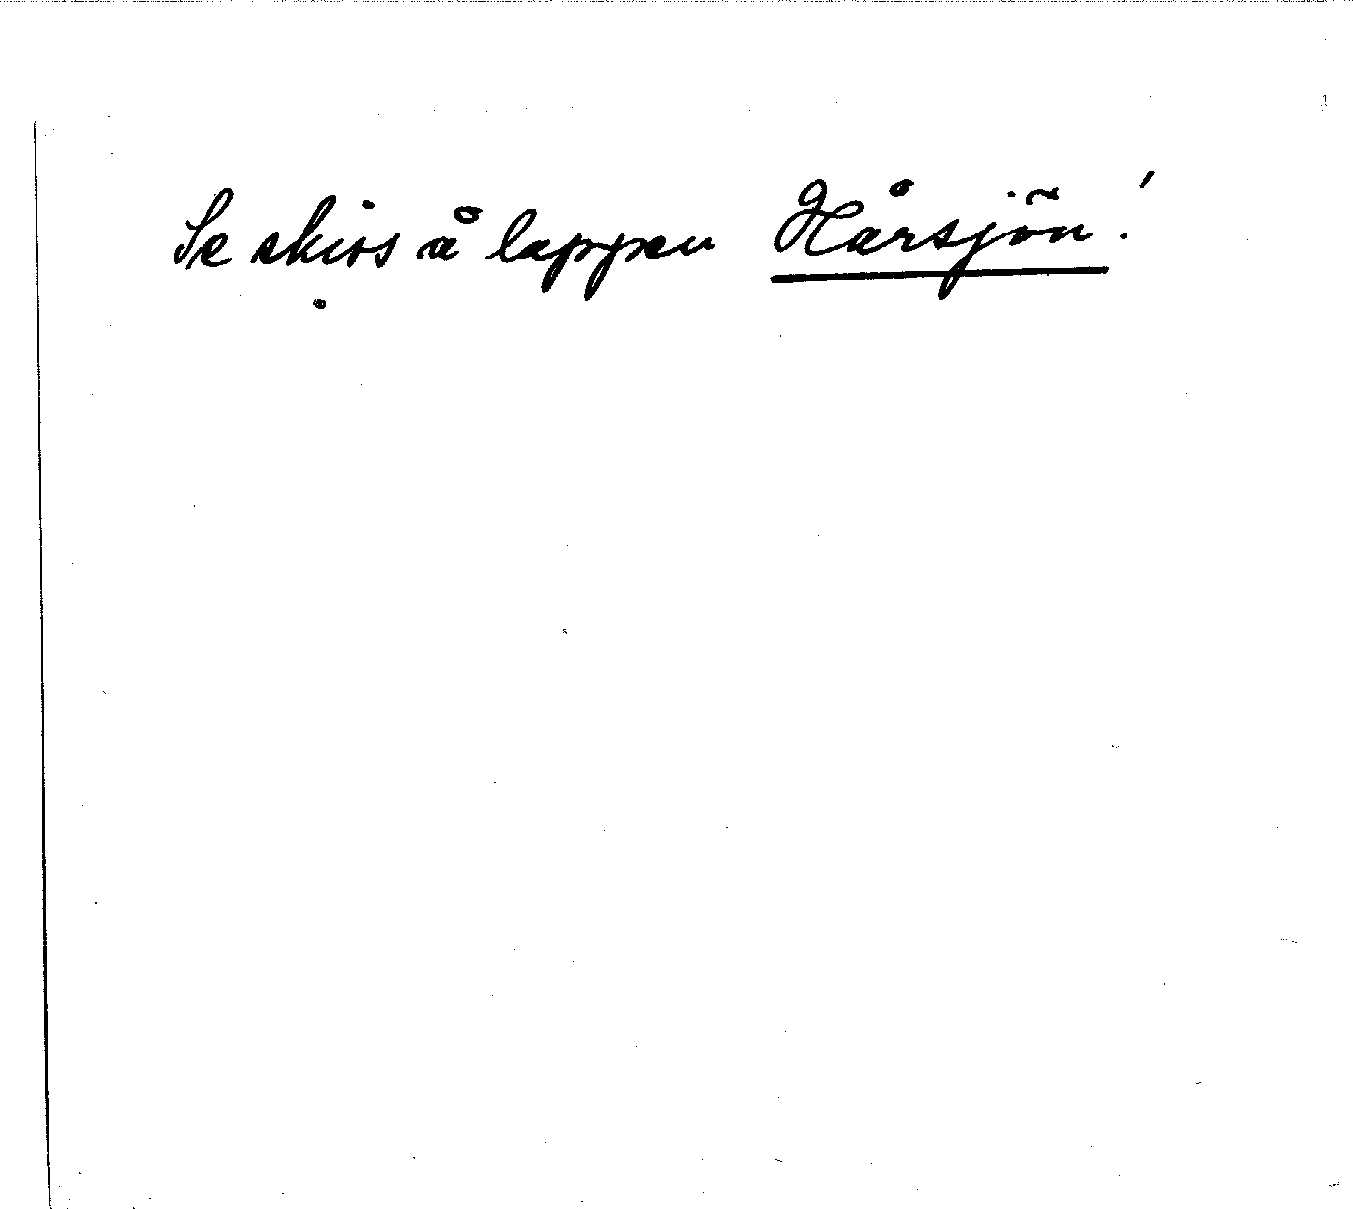 Se skiss å lappen Hårsjön!